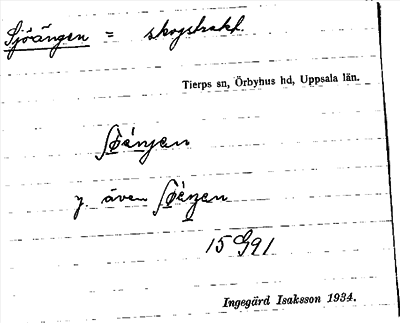 Sjöängen = skogstrakt.
Tierps sn, Örbyhus hd, Uppsala län.
y. även
15 G 91
Ingegärd Isaksson 1934.